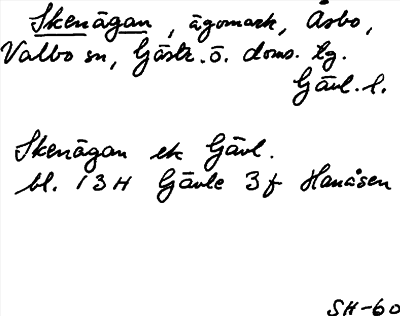 Skenägan, ägomark, Åsbo,
Valbo sn, Gästr. ö. doms. tg.
Gävl. l.
Skenägan ek Gävl.
bl. 13H Gävle 3f Hanåsen
SH-60